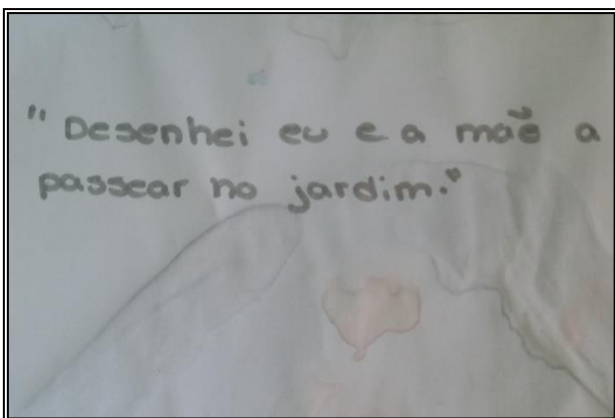 "Desenhei eu e a mãe a
passear no jardim."